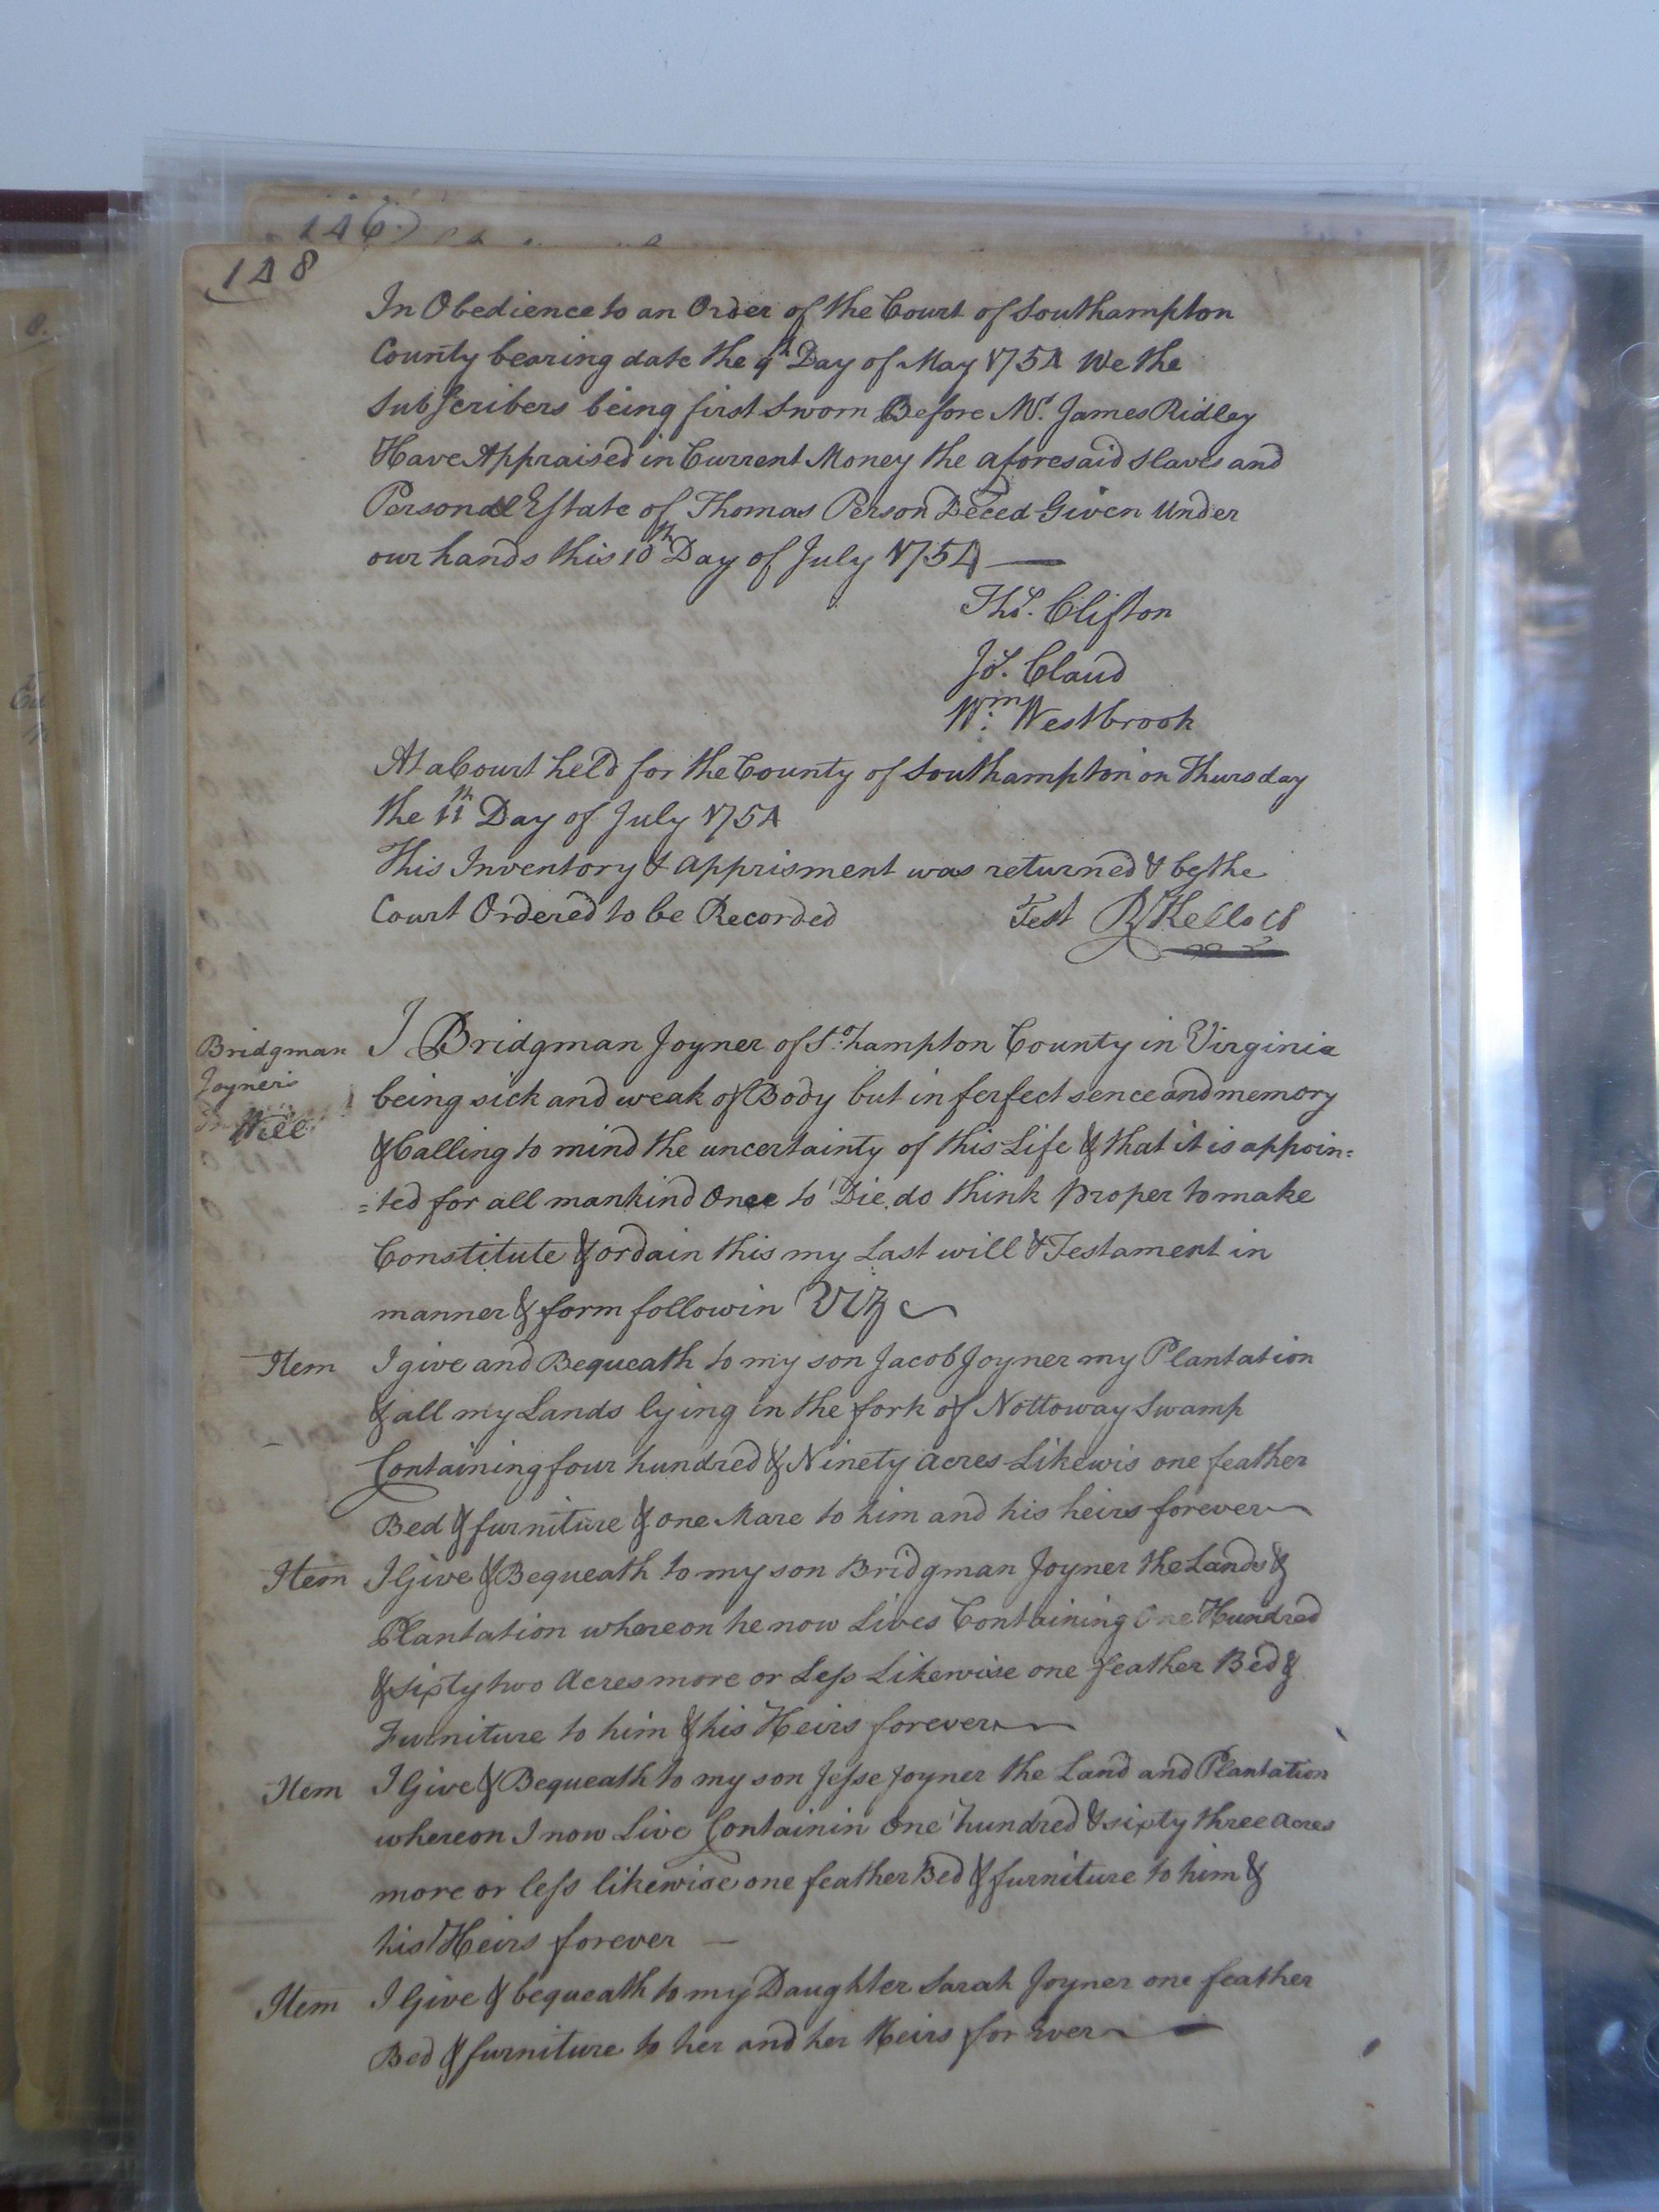 146
148
In Obedience to an Order of the Court of Southampton
County bearing date the 9th Day of May 1754 We the
Subscribers being first Sworn Before Mr. James Ridley
Have Appraised in Current Money the aforesaid Slaves and
Personal Estate of Thomas Person Deced Given Under
our hands this 10th Day of July 1754
Thos. Clifton
Jos. Claud
Wm. Westbrook
At a Court held for the County of Southampton on Thursday
the 11th Day of July 1754
This Inventory & apprisment was returned & by the
Court Ordered to be Recorded Test R Kello Cl
Bridgman
Joyner's
Will
I Bridgman Joyner of So.hampton County in Virginia
being sick and weak of Body but in perfect sence and memory
& Calling to mind the uncertainty of this Life & that it is appoin=
=ted for all mankind Once to Die, do think proper to make
Constitute & ordain this my Last will & Testament in
manner & form followin Viz
Item I give and Bequeath to my son Jacob Joyner my Plantation
& all my Lands lying in the fork of Nottoway Swamp
Containing four hundred & Ninety acres Likewis one feather
Bed & furniture & one Mare to him and his heirs forever
Item I Give & Bequeath to my son Bridgman Joyner the Lands &
Plantation whereon he now Lives Containing One Hundred
& sixty two Acres more or Less Likewise one feather Bed &
Furniture to him & his Heirs forever
Item I Give & Bequeath to my son Jesse Joyner the Land and Plantation
whereon I now Live Containin One hundred & sixty three acres
more or less likewise one feather Bed & furniture to him &
his Heirs forever
Item I Give & bequeath to my Daughter Sarah Joyner one feather
Bed & furniture to her and her Heirs for Ever